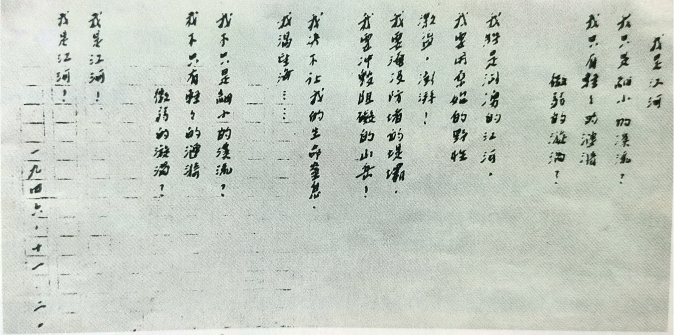 我是江河
我只是细小的溪流？
我只有轻轻的涟漪
微弱的漩涡？
我将是汹涌的江河。
我要用原始的野性
激荡，澎湃！
我要淹没防堵的堤坝，
我要冲毁阻碍的山岳！
我决不让我的生命窒息。
我渴望海……
我不只是细小的溪流？
我不只有轻轻的涟漪
微弱的漩涡？
我是江河！
我是江河！
一九四六·十一·二。